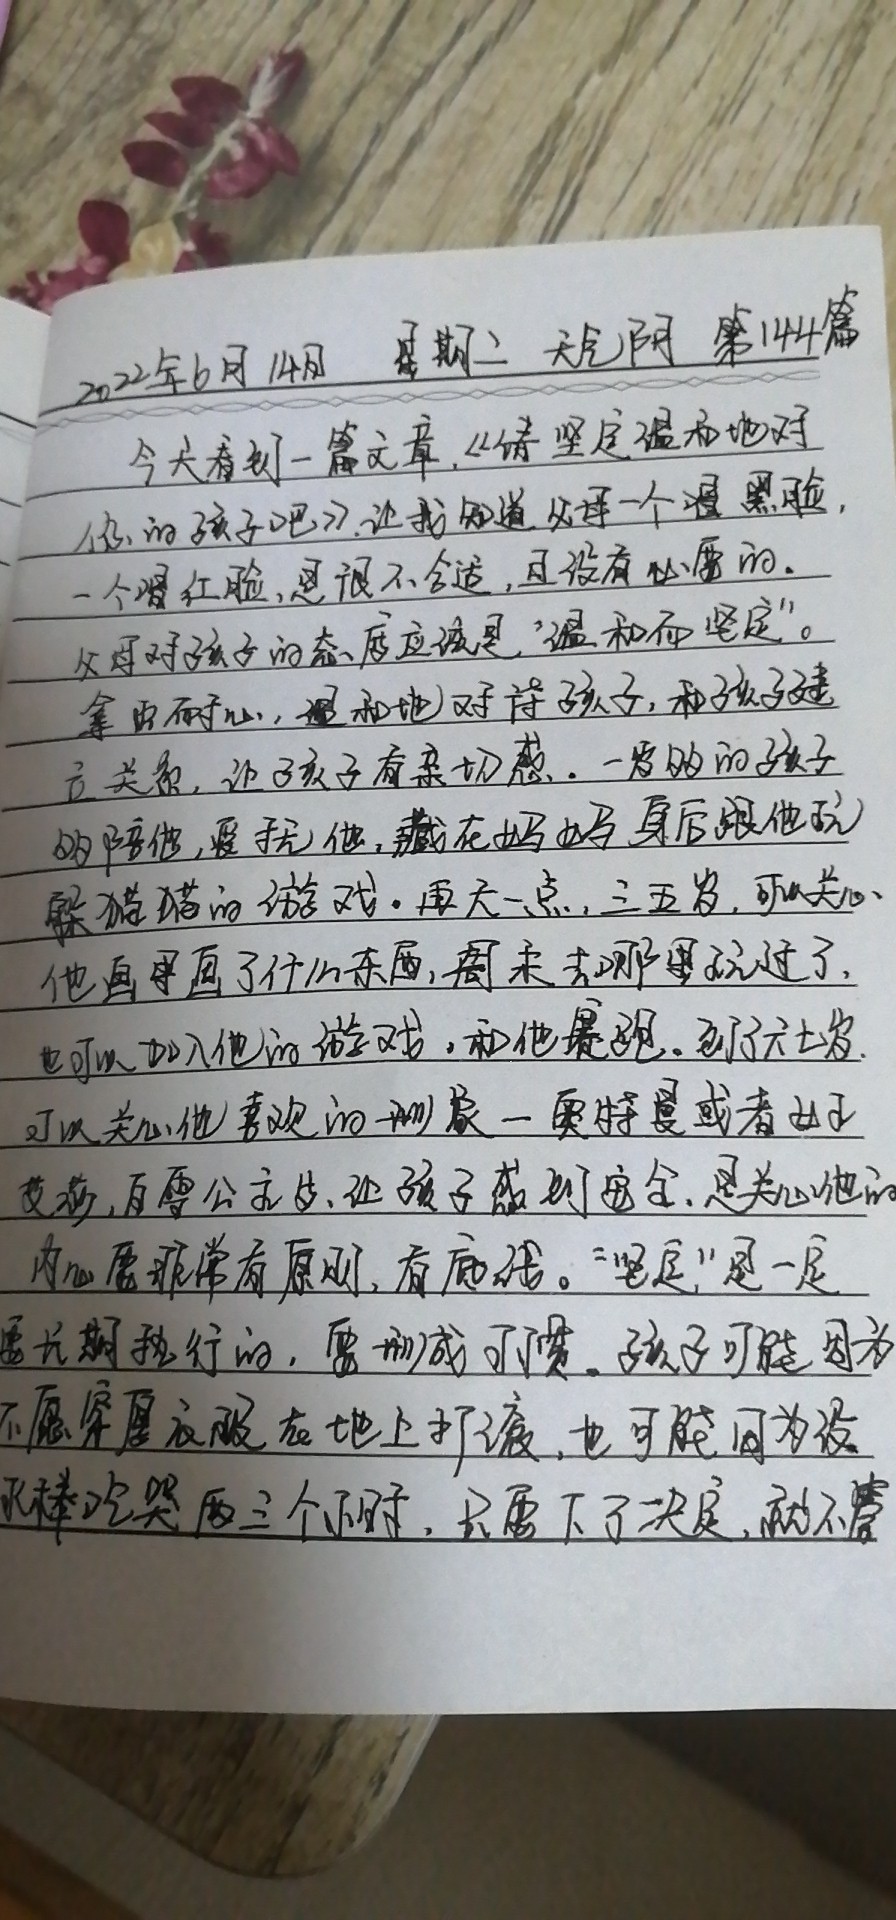 2022年6月14日 星期二 天气阴 第144篇
今天看到一篇文章,《请坚定温和地对
你的孩子吧》,让我知道父母一个唱黑脸,
一个唱红脸,是很不合适,且没有必要的。
父母对孩子的态度应该是“温和而坚定”。
拿出耐心,温和地对待孩子,和孩子建
立关系,让孩子有亲切感。一岁的孩子
陪他,爱抚他,藏在妈妈身后跟他玩
躲猫猫的游戏。再大一点,三五岁,可以关心
他画里画了什么东西,周末去哪里玩过了,
也可以加入他的游戏,和他赛跑。到了六七岁,
可以关心他喜欢的形象一奥特曼或者女王
艾莎,白雪公主等,让孩子感到安全,是关心他的
内心要非常有原则,有底线。“坚定”是一定
要长期执行的,要形成习惯。孩子可能因为
不愿穿厚衣服在地上打滚,也可能因为没
冰棒吃哭两三个小时,只要下了决定,就不管